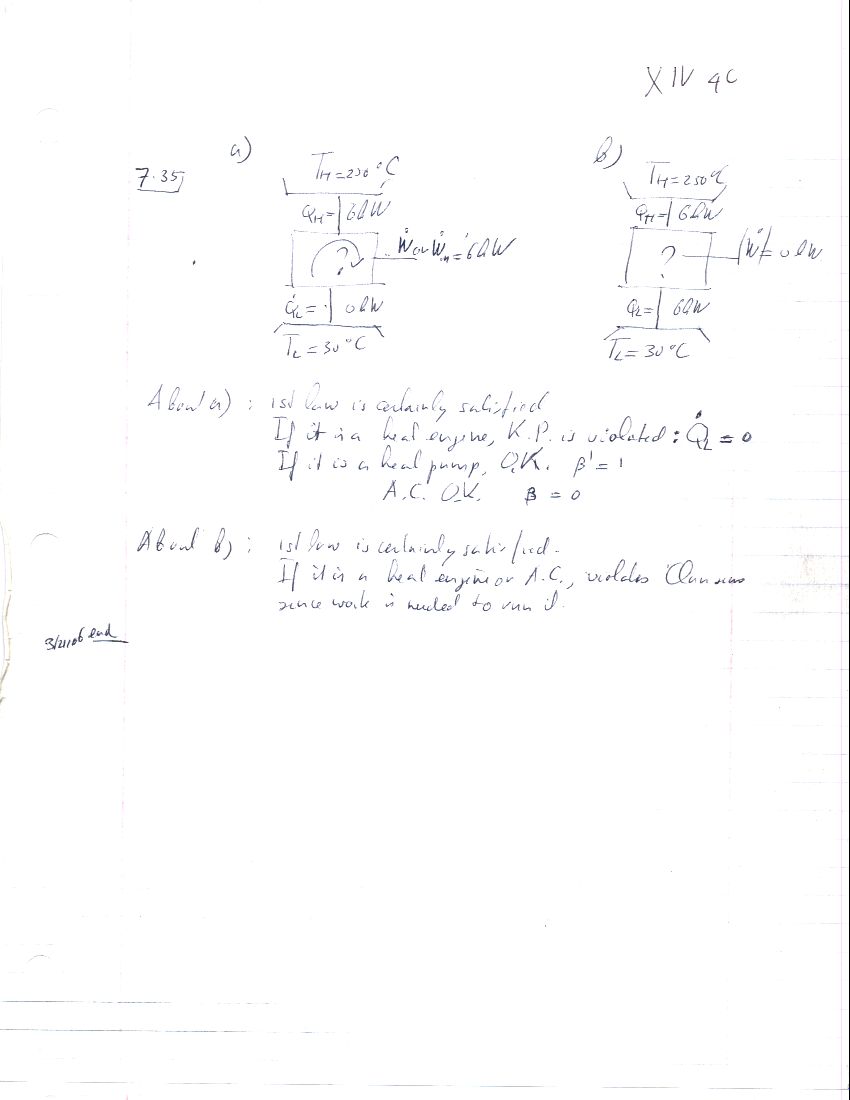 XIV 4C
a)
b)
7.35
T_H = 250°C
T_H = 250°C
Q_H = 6 kW
Q_H = 6 kW
?
Ẇ or Ẇ_in = 6 kW
?
|Ẇ| = 0 kW
Q̇_L = 0 kW
Q_L = 6 kW
T_L = 30°C
T_L = 30°C
About a) : 1st law is certainly satisfied
If it is a heat engine, K.P. is violated : Q̇_L = 0
If it is a heat pump, O.K. β' = 1
A.C. O.K. β = 0
About b) : 1st law is certainly satisfied.
If it is a heat engine or A.C., violates Clausius
since work is needed to run it.
end